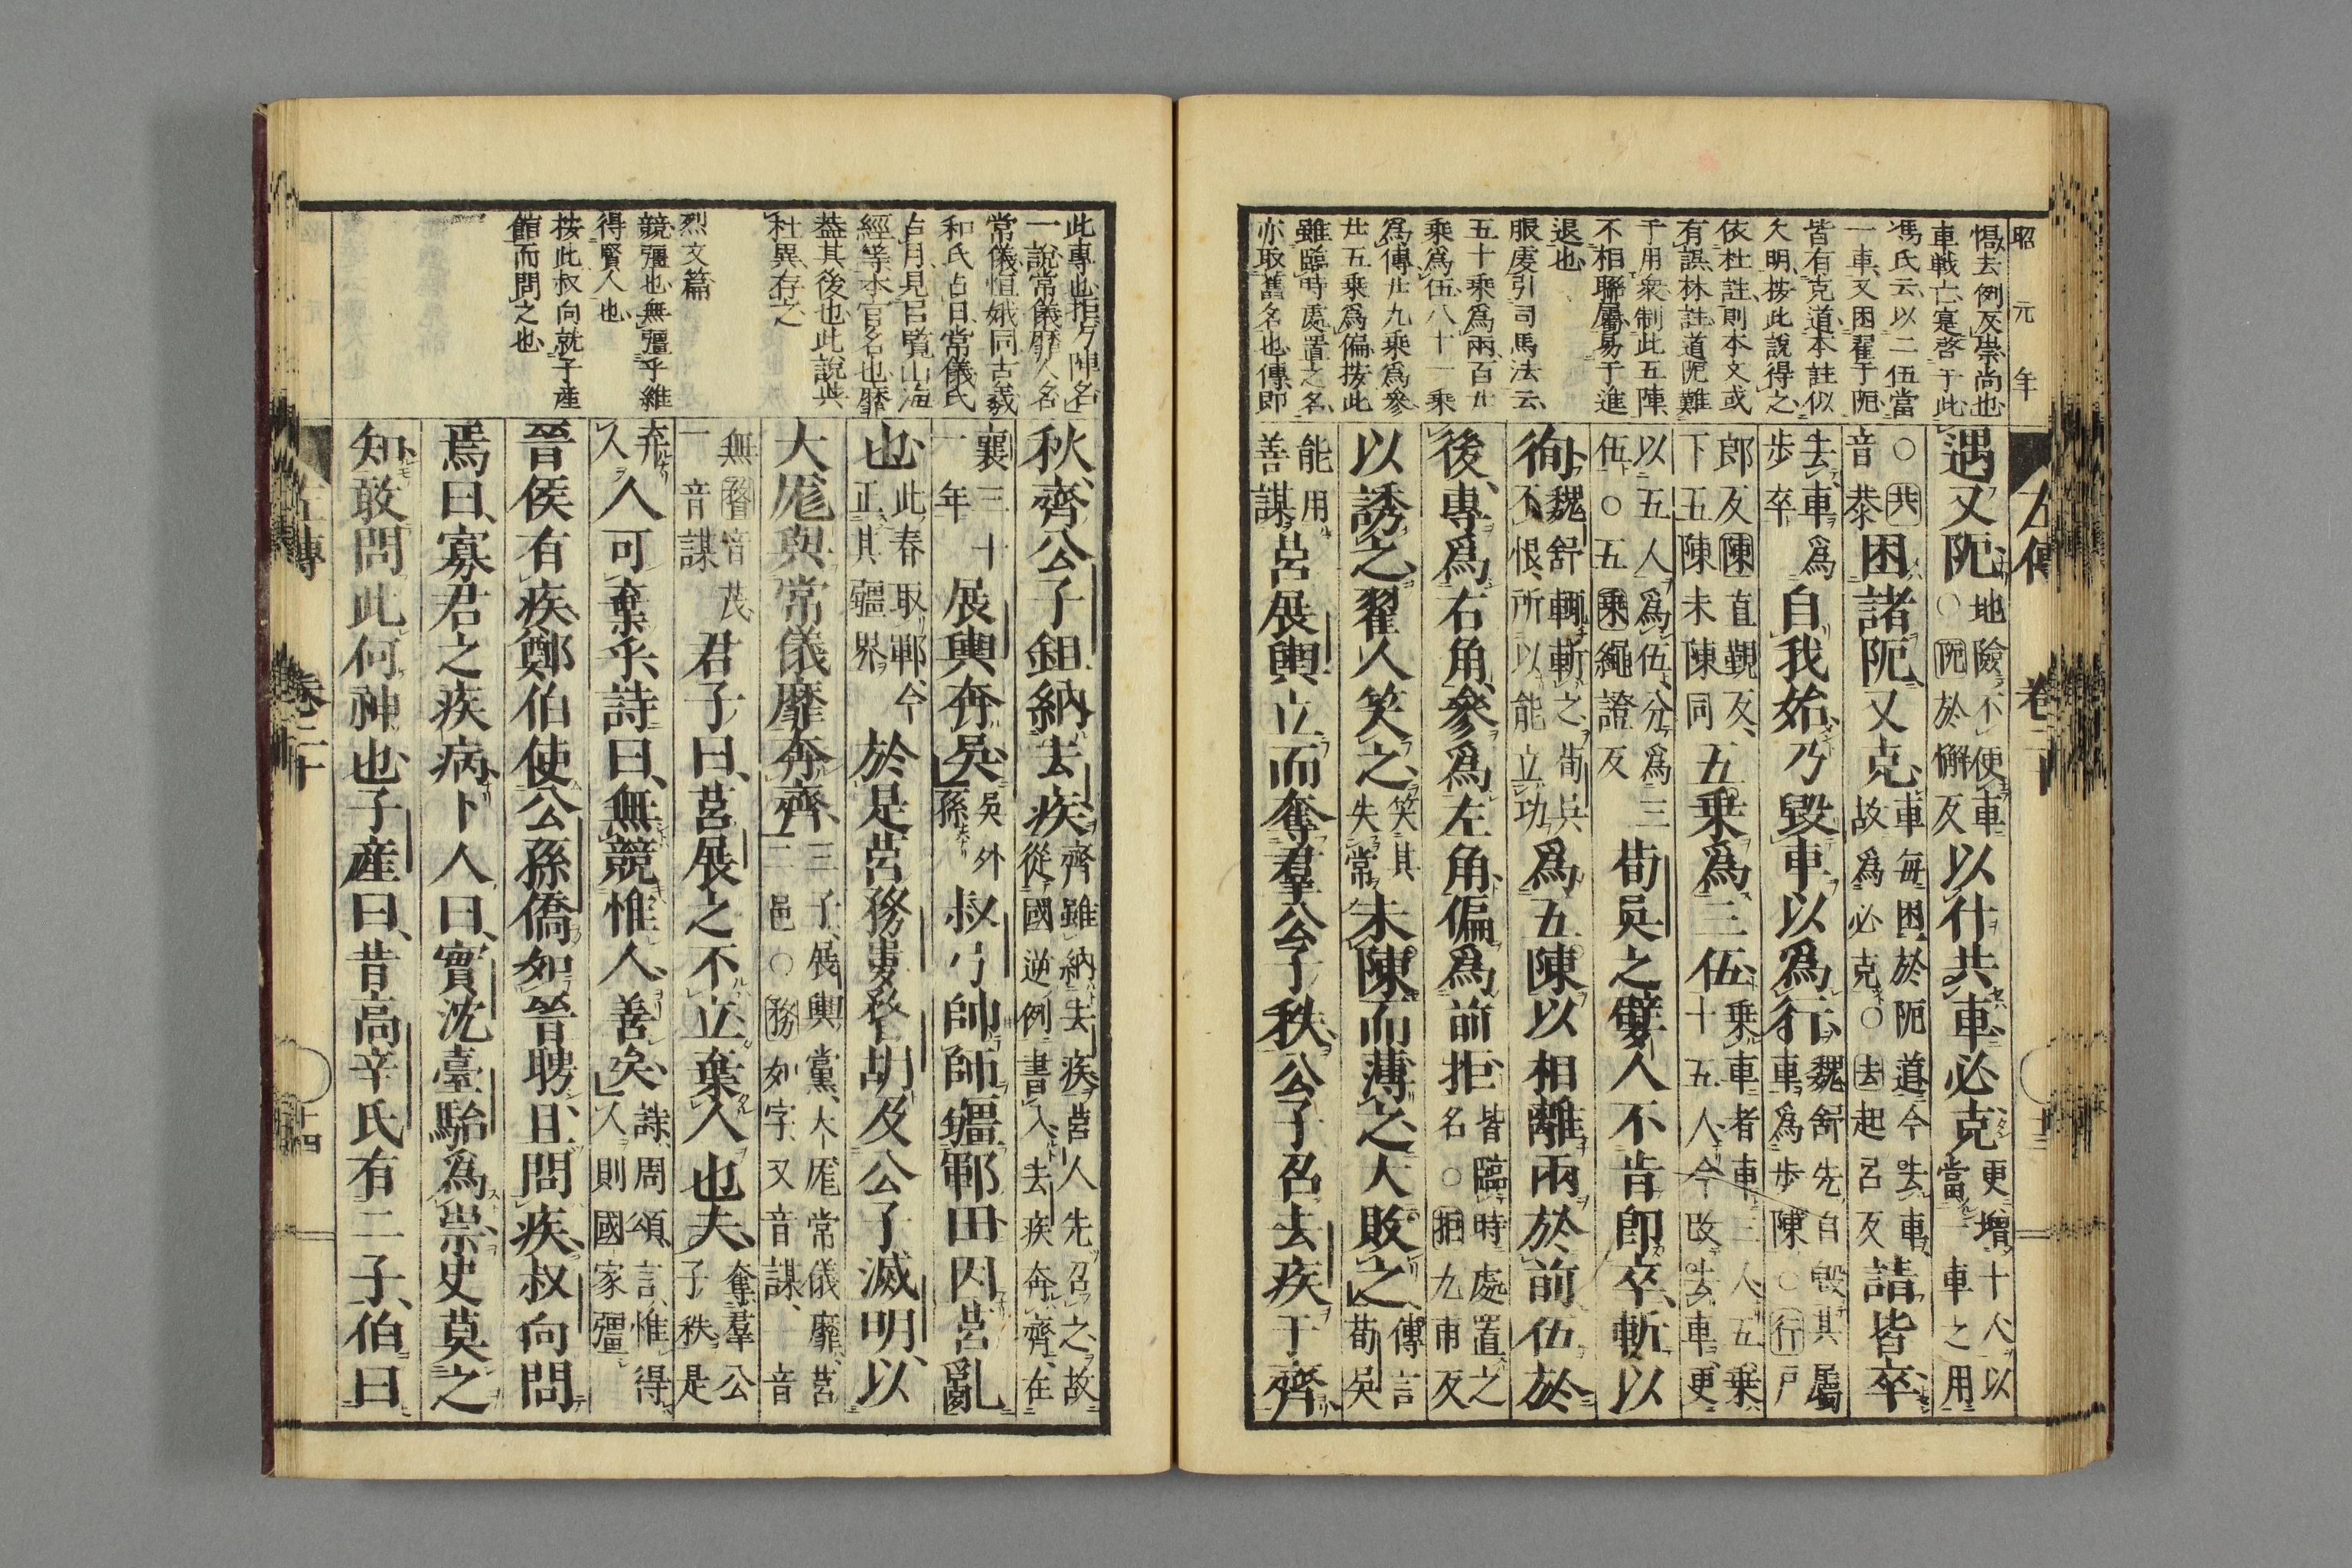 昭元年
惕去例反崇尚也
車戰亡寔啓于此
馮氏云以二伍當
一車又困翟于阨
皆有克道本註似
欠明按此說得之
依杜註則本文或
有誤林註道阨難
于用衆制此五陣
不相聯屬易于進
退也
服虔引司馬法云
五十乘爲兩百廿
乘爲伍八十一乘
爲傳廿九乘爲參
廿五乘爲偏按此
雖臨時處置之名
亦取舊名也傳即
左傳 卷二十 十三
遇又阨地險不便車○阨於懈反以什共車必克更增十人以當一車之用
○共音恭困諸阨又克車每困於阨道今去車故爲必克○去起呂反請皆卒
去車爲步卒自我始乃毀車以爲行魏舒先自毀其屬車爲步陳○行戶
郎反陳直覲反下五陳未陳同五乘爲三伍乘車者車三人五乘十五人今改去車更
以五人爲伍分爲三伍○五乘繩證反荀吳之嬖人不肯即卒斬以
徇魏舒輒斬之荀吳不恨所以能立功爲五陳以相離兩於前伍於
後專爲右角參爲左角偏爲前拒皆臨時處置之名○拒九甫反
以誘之翟人笑之笑其失常未陳而薄之大敗之傳言荀吳
能用善謀莒展輿立而奪羣公子秩公子召去疾于齊
此專也拒夕陣名
一說常儀靡人名
常儀恒娥同古義
和氏占日常儀氏
占月見呂覽山海
經等本官名也靡
蓋其後也此說與
杜異存之
烈文篇
競彊也無彊乎維
得賢人也
按此叔向就子產
館而問之也
秋齊公子鉏納去疾齊雖納去疾莒人先召之故從國逆例書入去疾奔齊在
襄三十一年展輿奔吳吳外孫叔弓帥師疆鄆田因莒亂
也此春取鄆今正其疆界於是莒務婁瞀胡及公子滅明以
大厖與常儀靡奔齊三子展輿黨大厖常儀靡莒二邑○務如字又音謀一音
無瞀音茂一音謀君子曰莒展之不立棄人也夫奪羣公子秩是
弃人人可棄乎詩曰無競惟人善矣詩周頌言惟得人則國家彊
晉侯有疾鄭伯使公孫僑如晉聘且問疾叔向問
焉曰寡君之疾病卜人曰實沈臺駘爲祟史莫之
知敢問此何神也子產曰昔高辛氏有二子伯曰
左傳 卷二十 十四